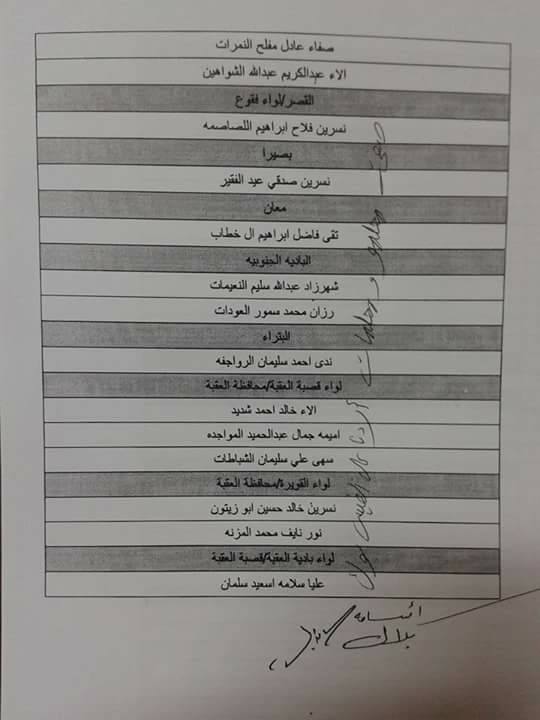 صفاء عادل مفلح النمرات
الاء عبدالكريم عبدالله الشواهين
القصر/لواء فقوع
نسرين فلاح ابراهيم اللصاصمه
بصيرا
نسرين صدقي عيد الفقير
معان
تقى فاضل ابراهيم ال خطاب
الباديه الجنوبيه
شهرزاد عبدالله سليم النعيمات
رزان محمد سمور العودات
البتراء
ندى احمد سليمان الرواجفه
لواء قصبة العقبة/محافظة العقبة
الاء خالد احمد شديد
اميمه جمال عبدالحميد المواجده
سهى علي سليمان الشباطات
لواء القويرة/محافظة العقبة
نسرين خالد حسين ابو زيتون
نور نايف محمد المزنه
لواء بادية العقبة/قصبة العقبة
عليا سلامه اسعيد سلمان
معلمو و معلمات